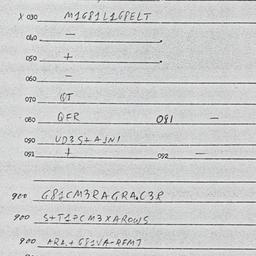 X 030 M1G81L1G8ELT
040 —
050 +
060 —
070 QT
080 QFR 081 —
090 UD3S+AJN1
091 + 092 —
900 G81CM3RAGRA.C3R
900 S+T17CM3XAROWS
900